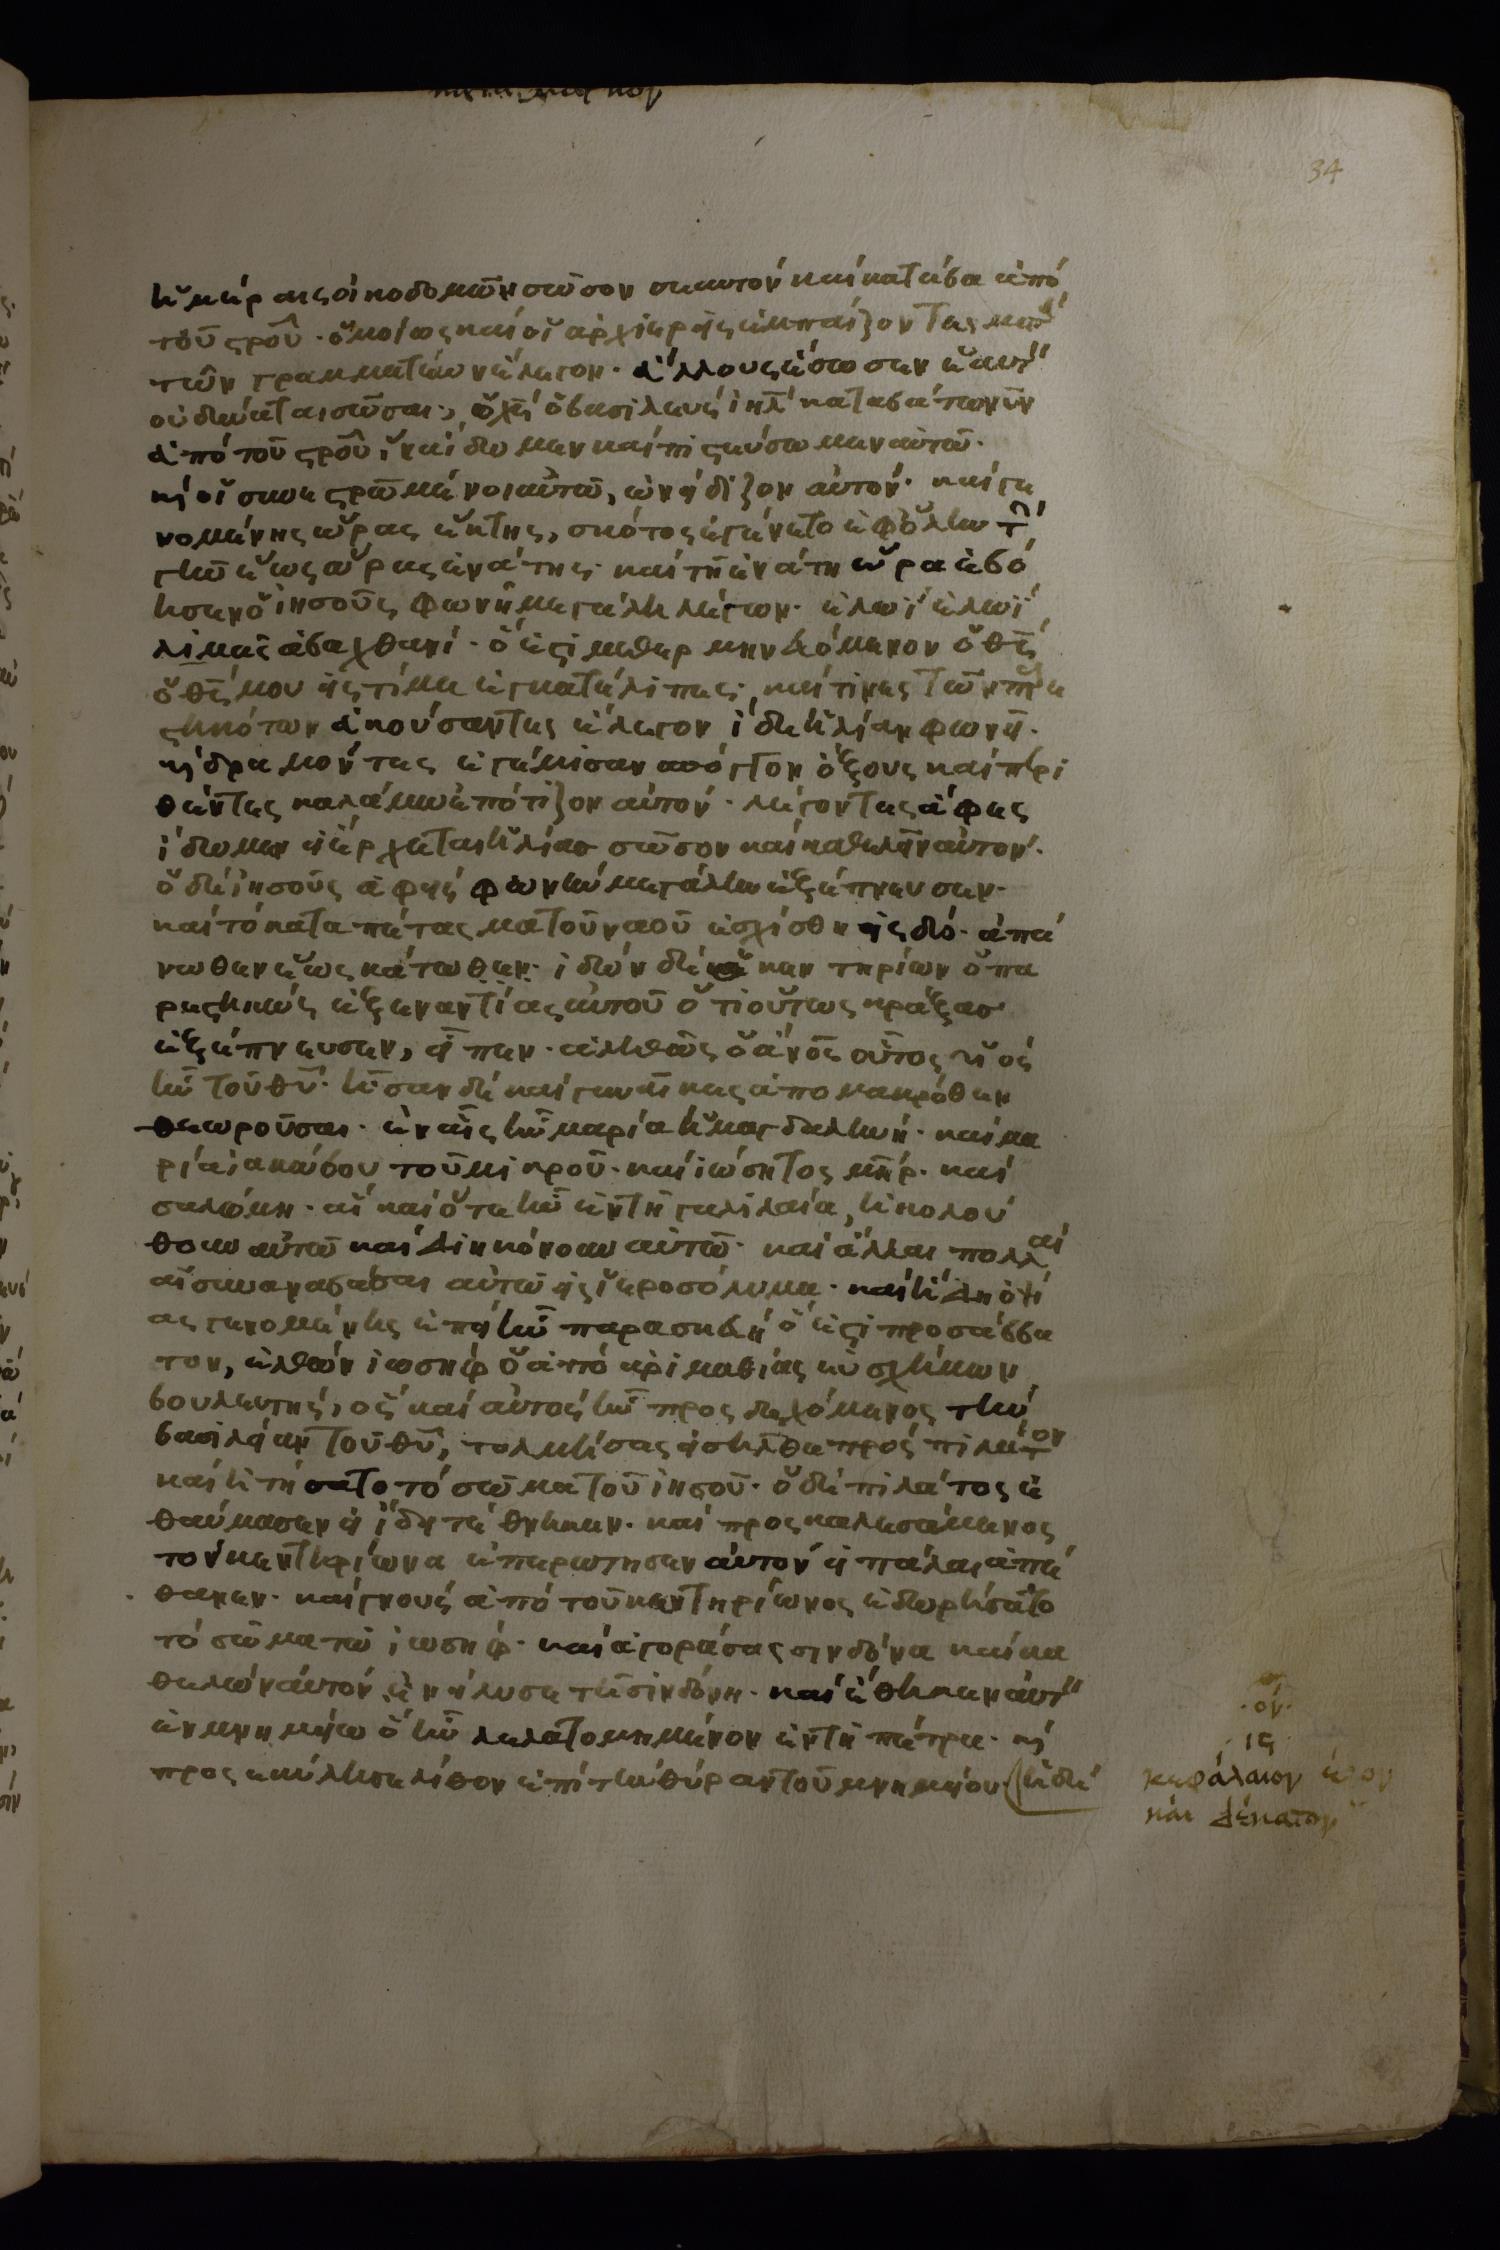 34
ἡμέραις οἰκοδομῶν σῶσον σεαυτόν καί κατάβα ἀπό
τοῦ σροῦ· ὁμοίως καί οἱ ἀρχιερεῖς ἐμπαίζοντες μετά
τῶν γραμματέων ἔλεγον· ἄλλους ἔσωσεν ἑαυτόν
οὐ δύναται σῶσαι· ὁ χς ὁ βασιλεύς ἰηλ καταβάτω νῦν
ἀπό τοῦ σροῦ, ἵνα ἴδωμεν καί πιστεύσωμεν αὐτῶ·
καί οἱ συνεσρωμένοι αὐτῶ, ὠνείδιζον αὐτόν· καί γε
νομένης ὥρας ἕκτης, σκότος ἐγένετο ἐφ ὅλην τήν
γῆν ἕως ὥρας ἐνάτης· καί τῆ ἐνάτη ὥρα ἐβό
ησεν ὁ ἰησοῦς φωνῆ μεγάλη λέγων· ἐλωΐ ἐλωΐ
λιμᾶ σαβαχθανί· ὅ ἐστι μεθερμηνευόμενον ὁ θς
ὁ θς μου εἰς τί με ἐγκατέλιπες· καί τινες τῶν παρε
στηκότων ἀκούσαντες ἔλεγον ἴδε ἠλίαν φωνεῖ·
καί δραμόντες ἐγέμισαν σπόγγον ὄξους καί περι
θέντες καλάμω ἐπότιζον αὐτόν· λέγοντες ἄφες
ἴδωμεν εἰ ἔρχεται ἠλίας σῶσον καί καθελεῖν αὐτόν·
ὁ δέ ἰησοῦς ἀφείς φωνήν μεγάλην ἐξέπνευσεν·
καί τό καταπέτασμα τοῦ ναοῦ ἐσχίσθη εἰς δύο· ἀπά
νωθεν ἕως κάτωθεν· ἰδών δέ ὁ κεντηρίων ὁ πα
ρεστηκώς ἐξ ἐναντίας αὐτοῦ ὅτι οὕτως κράξας
ἐξέπνευσεν, εἶπεν· ἀληθῶς ὁ ἄνος οὗτος υἱός
ἦν τοῦ θυ· ἦσαν δέ καί γυναῖκες ἀπο μακρόθεν
θεωροῦσαι· ἐν αἷς ἦν μαρία ἡ μαγδαληνή· καί μα
ρία ἰακώβου τοῦ μικροῦ· καί ἰώσητος μηρ· καί
σαλώμη· αἵ καί ὅτε ἦν ἐν τῆ γαλιλαία, ἠκολού
θουν αὐτῶ καί διηκόνουν αὐτῶ· καί ἄλλαι πολλαί
αἱ συναναβάσαι αὐτῶ εἰς ἱεροσόλυμα· καί ἤδη ὀψί
ας γενομένης ἐπεί ἦν παρασκευή ὅ ἐστι προσάββα
τον, ἐλθών ἰωσήφ ὁ ἀπό ἀριμαθίας εὐσχήμων
βουλευτής, ὅς καί αὐτός ἦν προσδεχόμενος τήν
βασιλείαν τοῦ θυ, τολμήσας εἰσῆλθε πρός πιλᾶτον
καί ἠτήσατο τό σῶμα τοῦ ἰησοῦ· ὁ δέ πιλάτος ἐ
θαύμασεν εἰ ἤδη τέθνηκεν· καί προσκαλεσάμενος
τόν κεντηρίωνα ἐπερώτησεν αὐτόν εἰ πάλαι ἀπέ
θανεν· καί γνούς ἀπό τοῦ κεντηρίωνος ἐδωρήσατο
τό σῶμα τῶ ἰωσήφ· καί ἀγοράσας σινδόνα καί κα
θελών αὐτόν ἐνείλυσε τῆ σινδόνη· καί ἔθηκεν αὐτόν
ἐν μνημείω ὅ ἦν λελατομημένον ἐν τῆ πέτρα· καί
προσεκύλησε λίθον ἐπί τήν θύραν τοῦ μνημείου· (ἡ δέ
·όν·
·ις·
κεφάλαιον
καί δέκατον